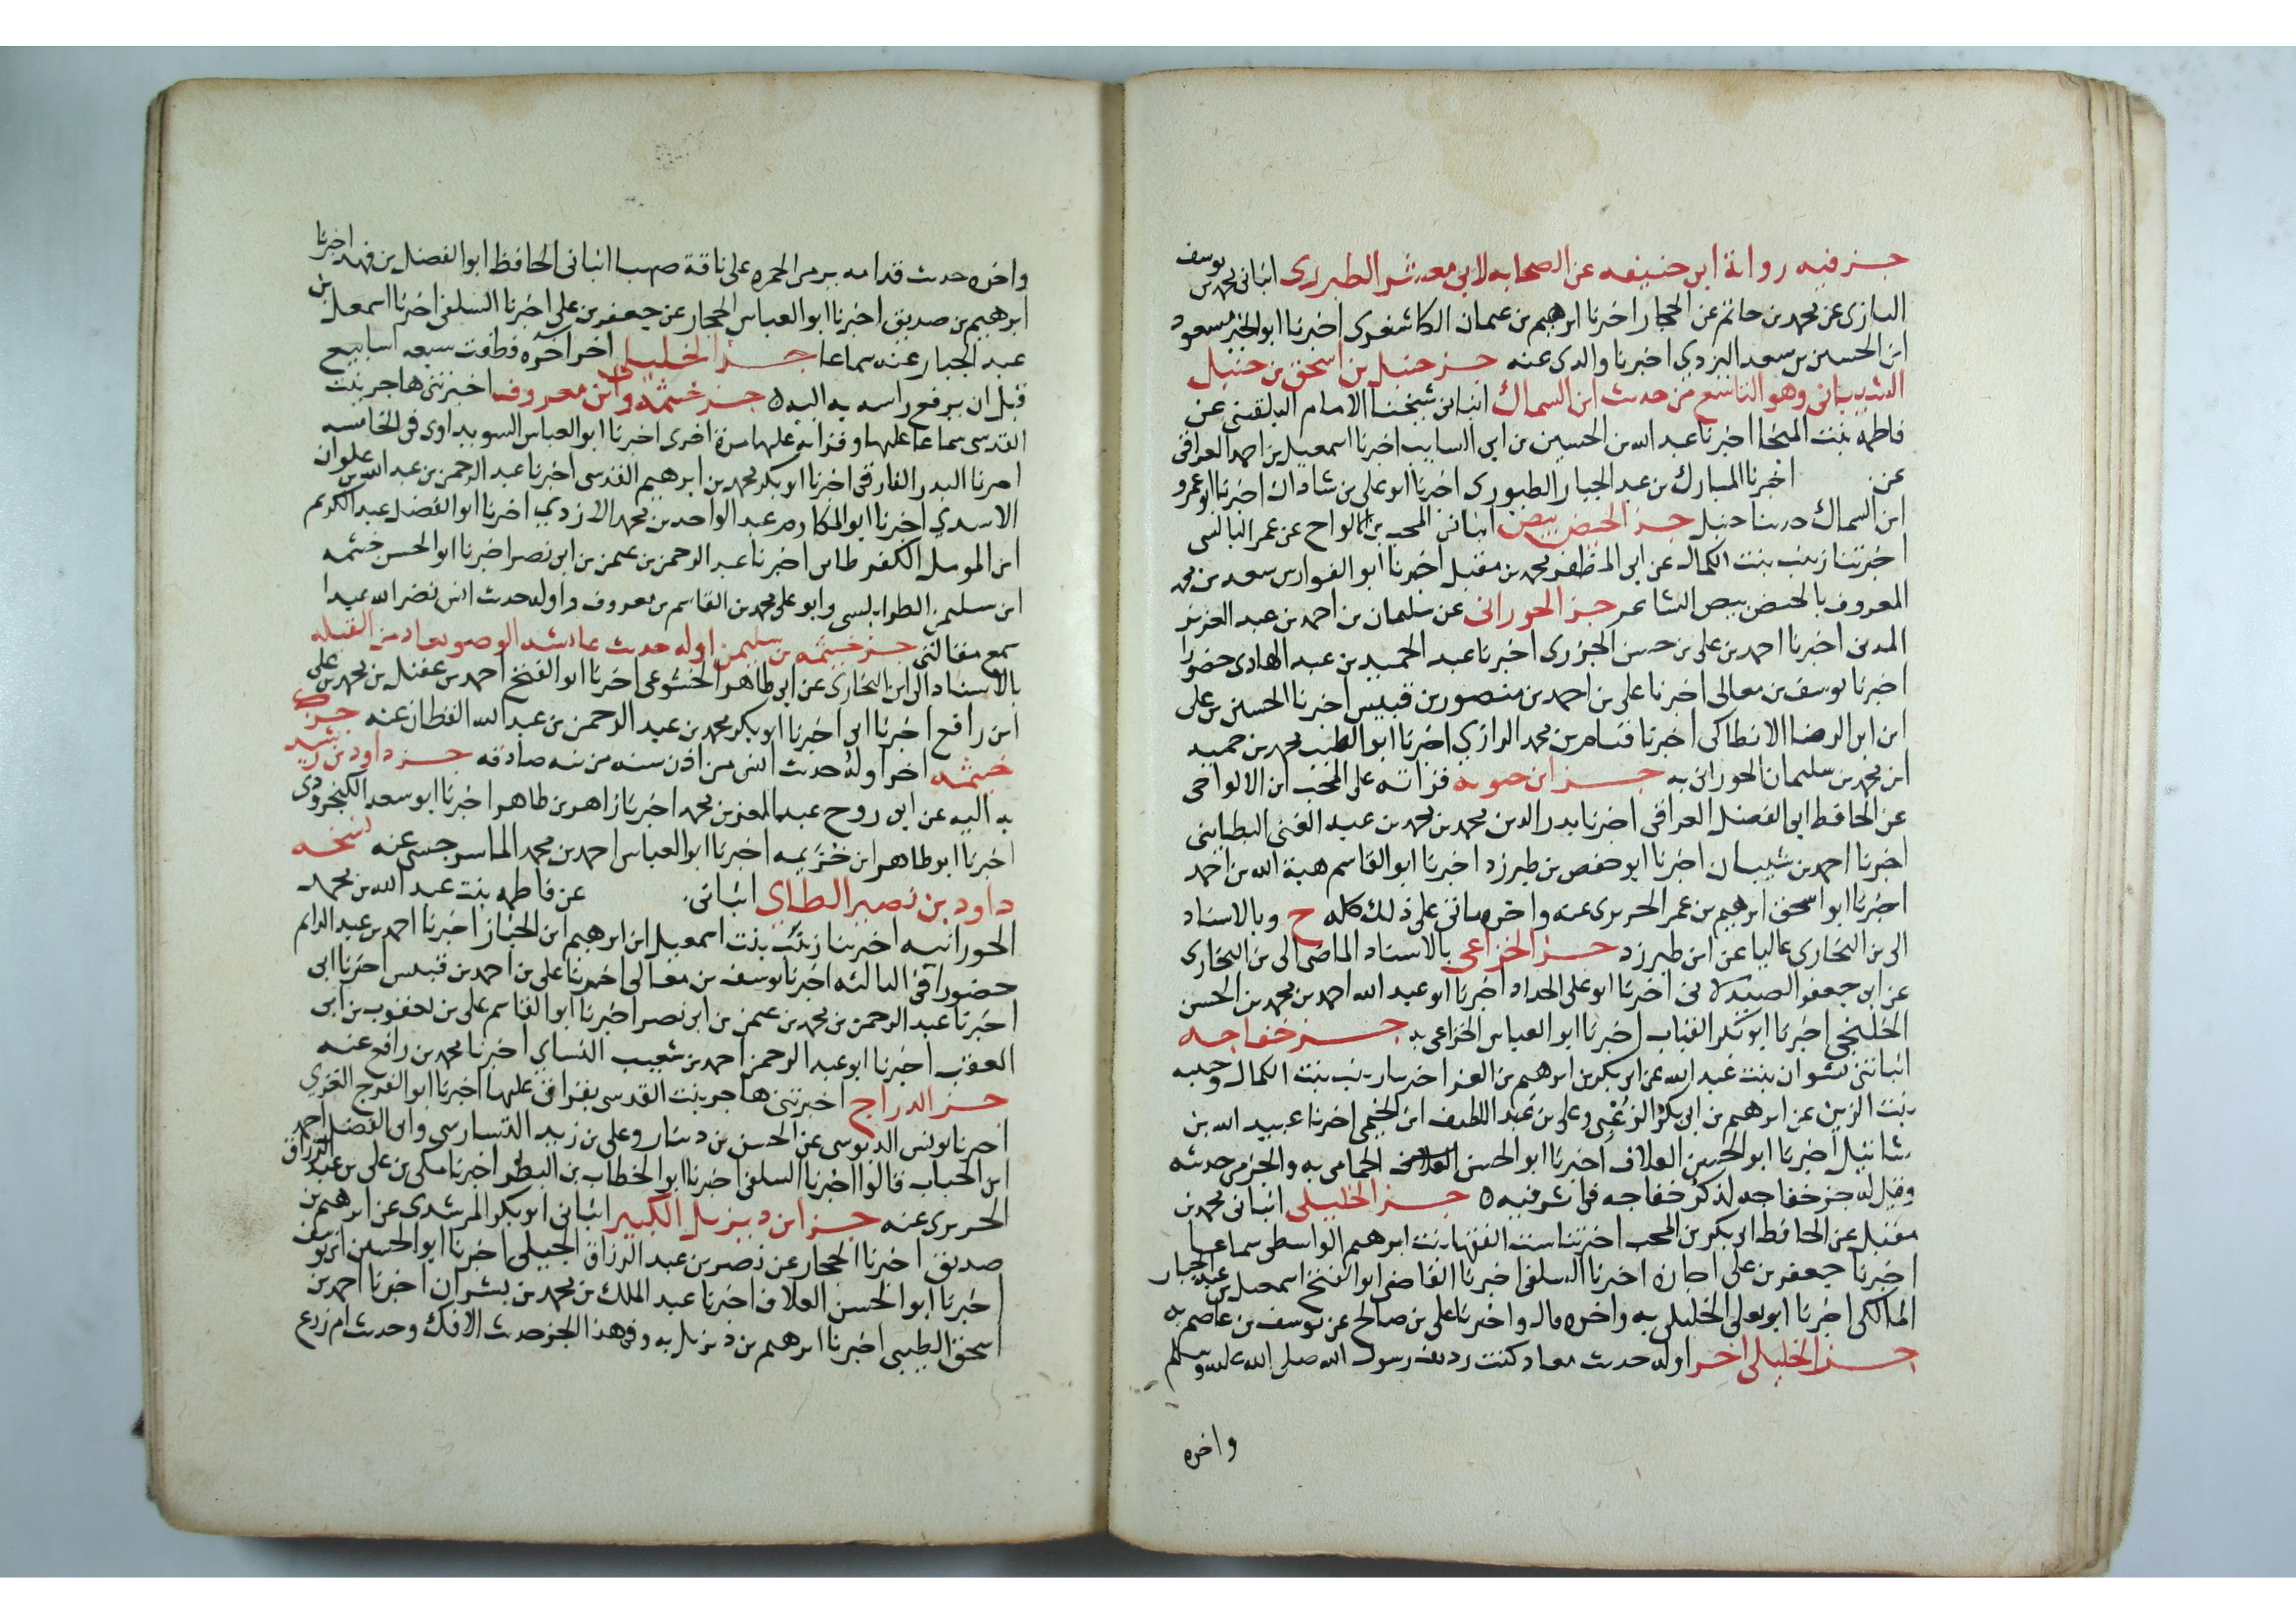 جزء فيه رواية ابى حنيفه عن الصحابه لابي معشر الطبرى انبانى محمد بن يوسف
البازى عن محمد بن حاتم عن الحجار اخبرنا ابرهيم بن عثمان الكاشغرى اخبرنا ابو الخير مسعود
ابن الحسين بن سعد اليزدي اخبرنا والدى عنه جزء حنبل بن اسحق بن حنبل
الشيبانى وهو التاسع من حديث ابن السماك انبا ابن شيخنا الامام البلقينى عن
فاطمه بنت المنجا اخبرنا عبد الله بن الحسين بن ابى السايب اخبرنا اسمعيل بن احمد العراقى
عن اخبرنا المبارك بن عبد الجبار الطيورى اخبرنا ابو على بن شاذان اخبرنا ابو عمرو
ابن السماك حدثنا حنبل جزء الحيص بيص انبانى المحب بن الالواحى عن عمر البالسى
اخبرتنا زينب بنت الكمال عن ابى المظفر محمد بن مقبل اخبرنا ابو الفوارس سعد بن محمد
المعروف بالحيص بيص الشاعر جزء الحورانى عن سليمان بن احمد بن عبد العزيز
المدنى اخبرنا احمد بن على بن حسن الجزرى اخبرنا عبد الحميد بن عبد الهادى حضورا
اخبرنا يوسف بن معالى اخبرنا على بن احمد بن منصور بن قبيس اخبرنا الحسين بن على
ابن ابى الرضا الانطاكى اخبرنا تمام بن محمد الرازي اخبرنا ابو الطيب محمد بن حميد
ابن محمد بن سليمان الحورانى به جزء ابن حيويه قراته على المحب ابن الالواحى
عن الحافظ ابى الفضل العراقى اخبرنا بدر الدين محمد بن محمد بن عبد الغنى البطاينى
اخبرنا احمد بن شيبان اخبرنا ابو حفص بن طبرزد اخبرنا ابو القاسم هبة الله بن احمد
اخبرنا ابو اسحق ابرهيم بن عمر الحريرى عنه واخرمانى على ذلك كله ح وبالاسناد
الى ابن البخارى عاليا عن ابن طبرزد جزء الخزاعى بالاسناد الماضى الى بن البخارى
عن ابى جعفر الصيدلانى اخبرنا ابو على الحداد اخبرنا ابو عبد الله احمد بن محمد بن الحسن
الخلنجى اخبرنا ابو بكر القباب اخبرنا ابو العباس الخزاعى به جزء خفاجه
انباتنى نشوان بنت عبد الله عن ابى بكر بن ابرهيم بن العز اخبرتنا زينب بنت الكمال وحبيبه
بنت الزين عن ابرهيم بن ابى بكر الزعبى وعلى بن عبد اللطيف ابن الخيمى اخبرنا عبيد الله بن
شاتيل اخبرنا ابو الحسين العلاف اخبرنا ابو الحسن الحمامى به والجزء من حديثه
وقيل له جزء خفاجه لذكر خفاجه فى اثر فيه ه جزء الخليلى انبانى محمد بن
مقبل عن الحافظ ابى بكر بن المحب اخبرتنا ست الفقها بنت ابرهيم الواسطى سماعا
اخبرنا جعفر بن على اجازه اخبرنا السلفى اخبرنا القاضى ابو الفتح اسمعيل بن عبد الجبار
المالكى اخبرنا ابو يعلى الخليلى به واخره قال واخبرنا على بن صالح عن يوسف بن عاصم به
جزء الخليلى اخر اوله حديث معاذ كنت رديف رسول الله صلى الله عليه وسلم
واخره
واخره حديث قدامه يرمى الجمره على ناقة صهبا انبانى الحافظ ابو الفضل بن فهد اخبرنا
ابرهيم بن صديق اخبرنا ابو العباس الحجار عن جعفر بن على اخبرنا السلفى اخبرنا اسمعيل بن
عبد الجبار عنه سماعا جزء الخليلى اخر اخره فطافت سبعه اسابيع
قبل ان يرفع راسه به اليه ه جزء خيثمه وابن معروف اخبرتنى هاجر بنت
القدسى سماعا عليها وقراءه عليها مرة اخرى اخبرنا ابو العباس السويداوى فى الخامسه
اخبرنا البدر الفارقى اخبرنا ابو بكر محمد بن ابرهيم القدسى اخبرنا عبد الرحمن بن عبد الله بن علوان
الاسدي اخبرنا ابو المكارم عبد الواحد بن محمد الازدي اخبرنا ابو الفضل عبد الكريم
ابن المومل الكفر طابى اخبرنا عبد الرحمن بن عثمن بن ابى نصر اخبرنا ابو الحسن خيثمه
ابن سليمن الطرابلسى وابو على محمد بن القاسم بن معروف واوله حديث انس نضر الله عبدا
سمع مقالتى جزء خيثمه بن سليمن اوله حديث عايشه الوضو يعاد من القبله
بالاسناد الى ابن البخارى عن ابى طاهر الخشوعى اخبرنا ابو الفتح احمد بن عقيل بن محمد بن على
ابن رافع اخبرنا ابى اخبرنا ابو بكر محمد بن عبد الرحمن بن عبد الله القطان عنه جزء
خيثمه اخر اوله حديث انس من اذن سنه من نيه صادقه جزء داود بن رشيد
به اليه عن ابى روح عبد المعز بن محمد اخبرنا زاهر بن طاهر اخبرنا ابو سعد الكنجرودى
اخبرنا ابو طاهر ابن خزيمه اخبرنا ابو العباس احمد بن محمد الماسرجسى عنه نسخه
داود بن نصير الطاى انبانى عن فاطمه بنت عبد الله بن محمد
الحورانيه اخبرتنا زينب بنت اسمعيل ابن ابرهيم ابن الخباز اخبرنا احمد بن عبد الدايم
حضورا فى الثالثه اخبرنا يوسف بن معالى اخبرنا على بن احمد بن قبيس اخبرنا ابى
اخبرنا عبد الرحمن بن محمد بن عثمن بن ابى نصر اخبرنا ابو القاسم على بن يعقوب بن ابى
العقب اخبرنا ابو عبد الرحمن احمد بن شعيب النساي اخبرنا محمد بن رافع عنه
جزء الدراج اخبرتنى هاجر بنت القدسى بقراتى عليها اخبرنا ابو الفرج الغزي
اخبرنا يونس الدبوسى عن الحسن بن دينار وعلى بن زيد التسارسى وابى الفضل احمد
ابن الحباب قالوا اخبرنا السلفى اخبرنا ابو الخطاب بن البطر اخبرنا مكى بن على بن عبد الرزاق
الحريرى عنه جزء ابن ديزيل الكبير انبانى ابو بكر المرشدى عن ابرهيم بن
صديق اخبرنا الحجار عن نصر بن عبد الرزاق الجيلى اخبرنا ابو الحسين ابن يوسف
اخبرنا ابو الحسن العلاف اخبرنا عبد الملك بن محمد بن بشران اخبرنا احمد بن
اسحق الطيبى اخبرنا ابرهيم بن ديزيل به وفى هذا الجزء حديث الافك وحديث ام زرع